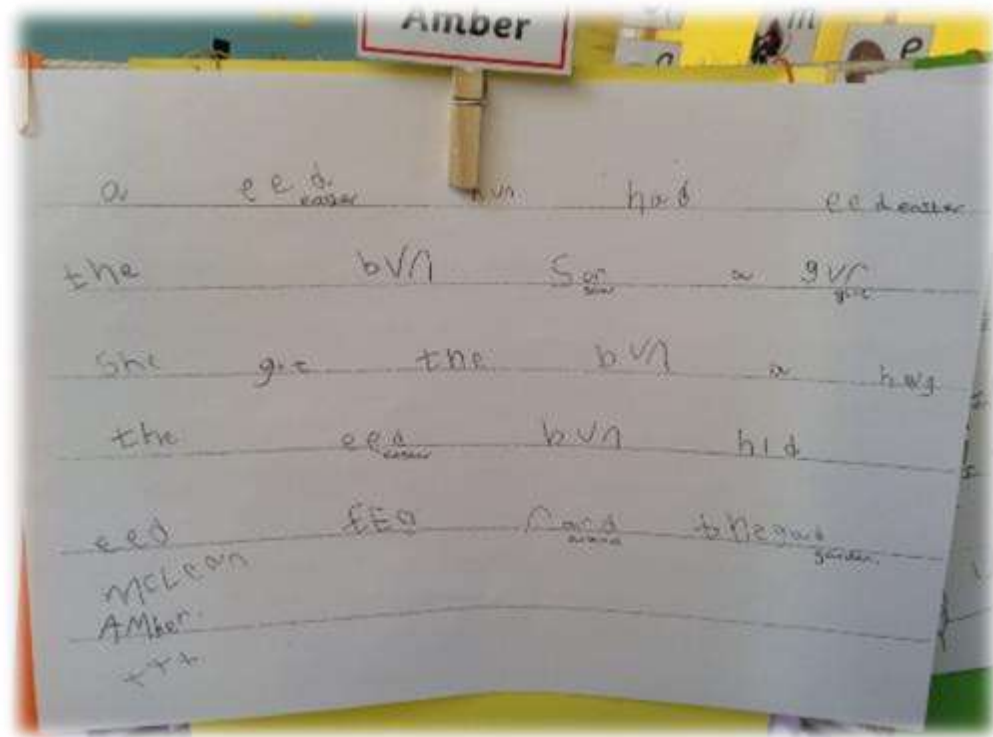 Amber
m
e
a eed easter had eed easter
the bun Sor saw a gur girl
She git the bun a hug
the eed easter bun hid
eed EEO rand around thegad garden.
McLean
AMber.
+++